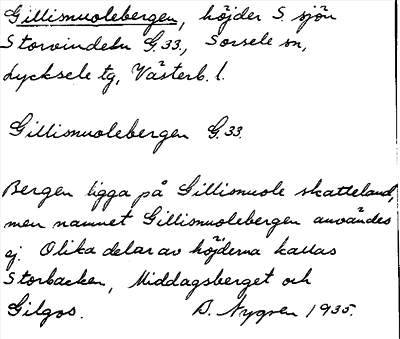 Gillismuolebergen, höjder S. sjön
Storvindeln G.33., Sorsele sn,
Lycksele tg, Västerb. l.
Gillismuolebergen G.33.
Bergen ligga på Gillismuole skatteland,
men namnet Gillismuolebergen användes
ej. Olika delar av höjderna kallas
Storbacken, Middagsberget och
Gilgos. D. Nygren 1935.